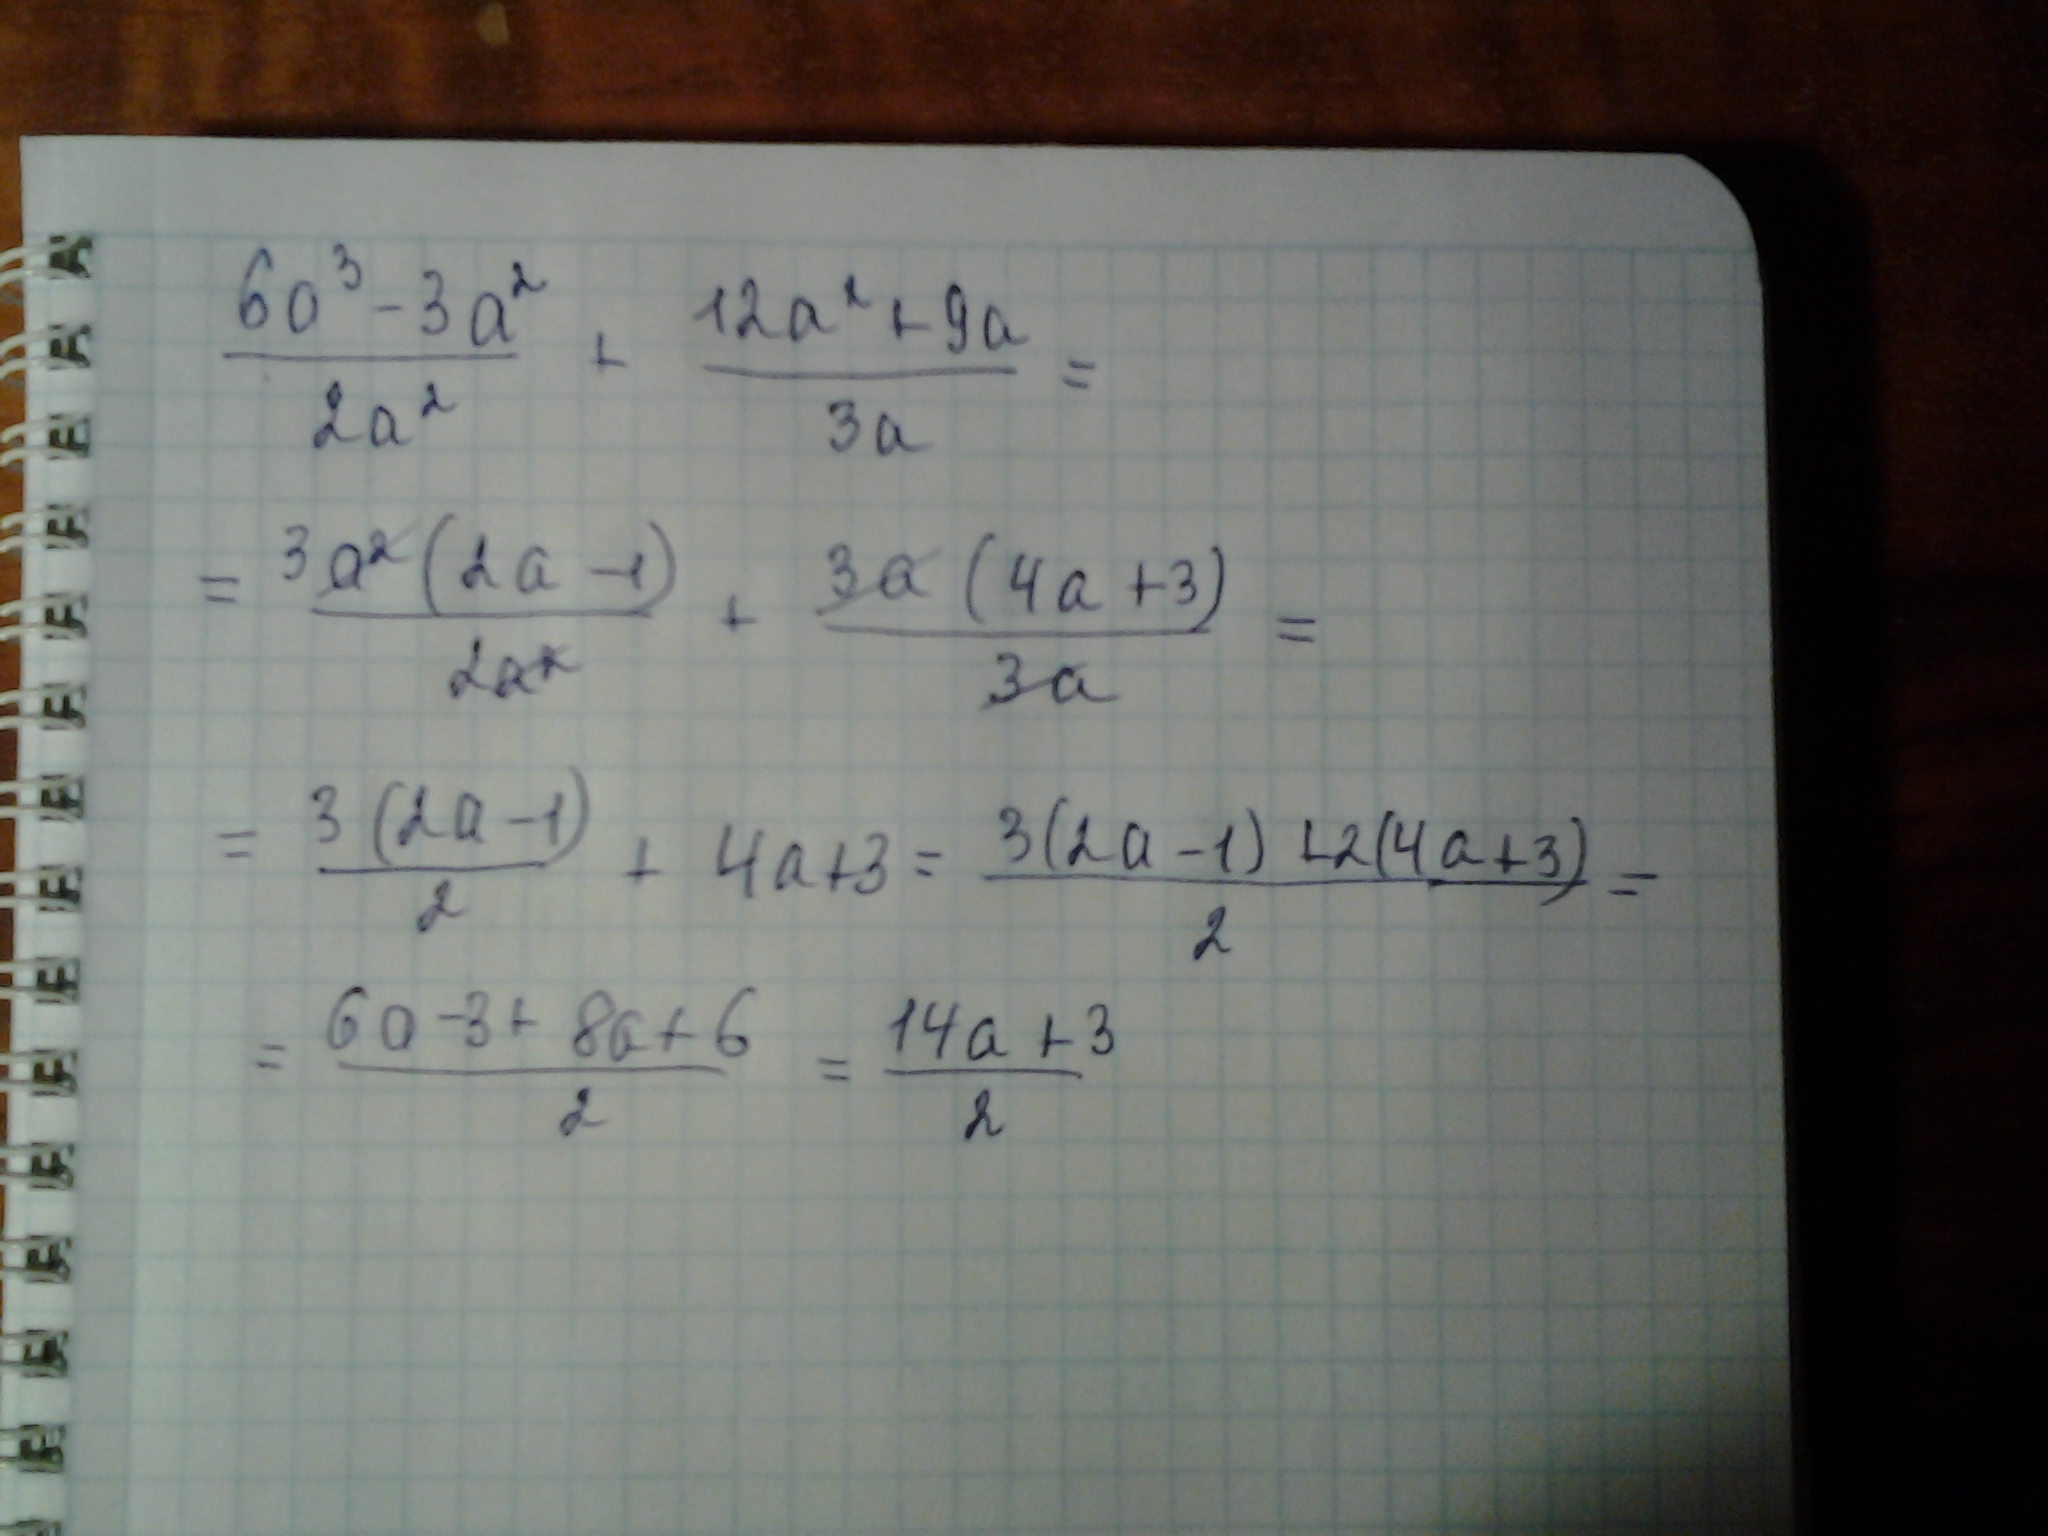 (6a³ - 3a²)/(2a²) + (12a² + 9a)/(3a) =
= (3a²(2a - 1))/(2a²) + (3a(4a + 3))/(3a) =
= (3(2a - 1))/2 + 4a + 3 = (3(2a - 1) + 2(4a + 3))/2 =
= (6a - 3 + 8a + 6)/2 = (14a + 3)/2